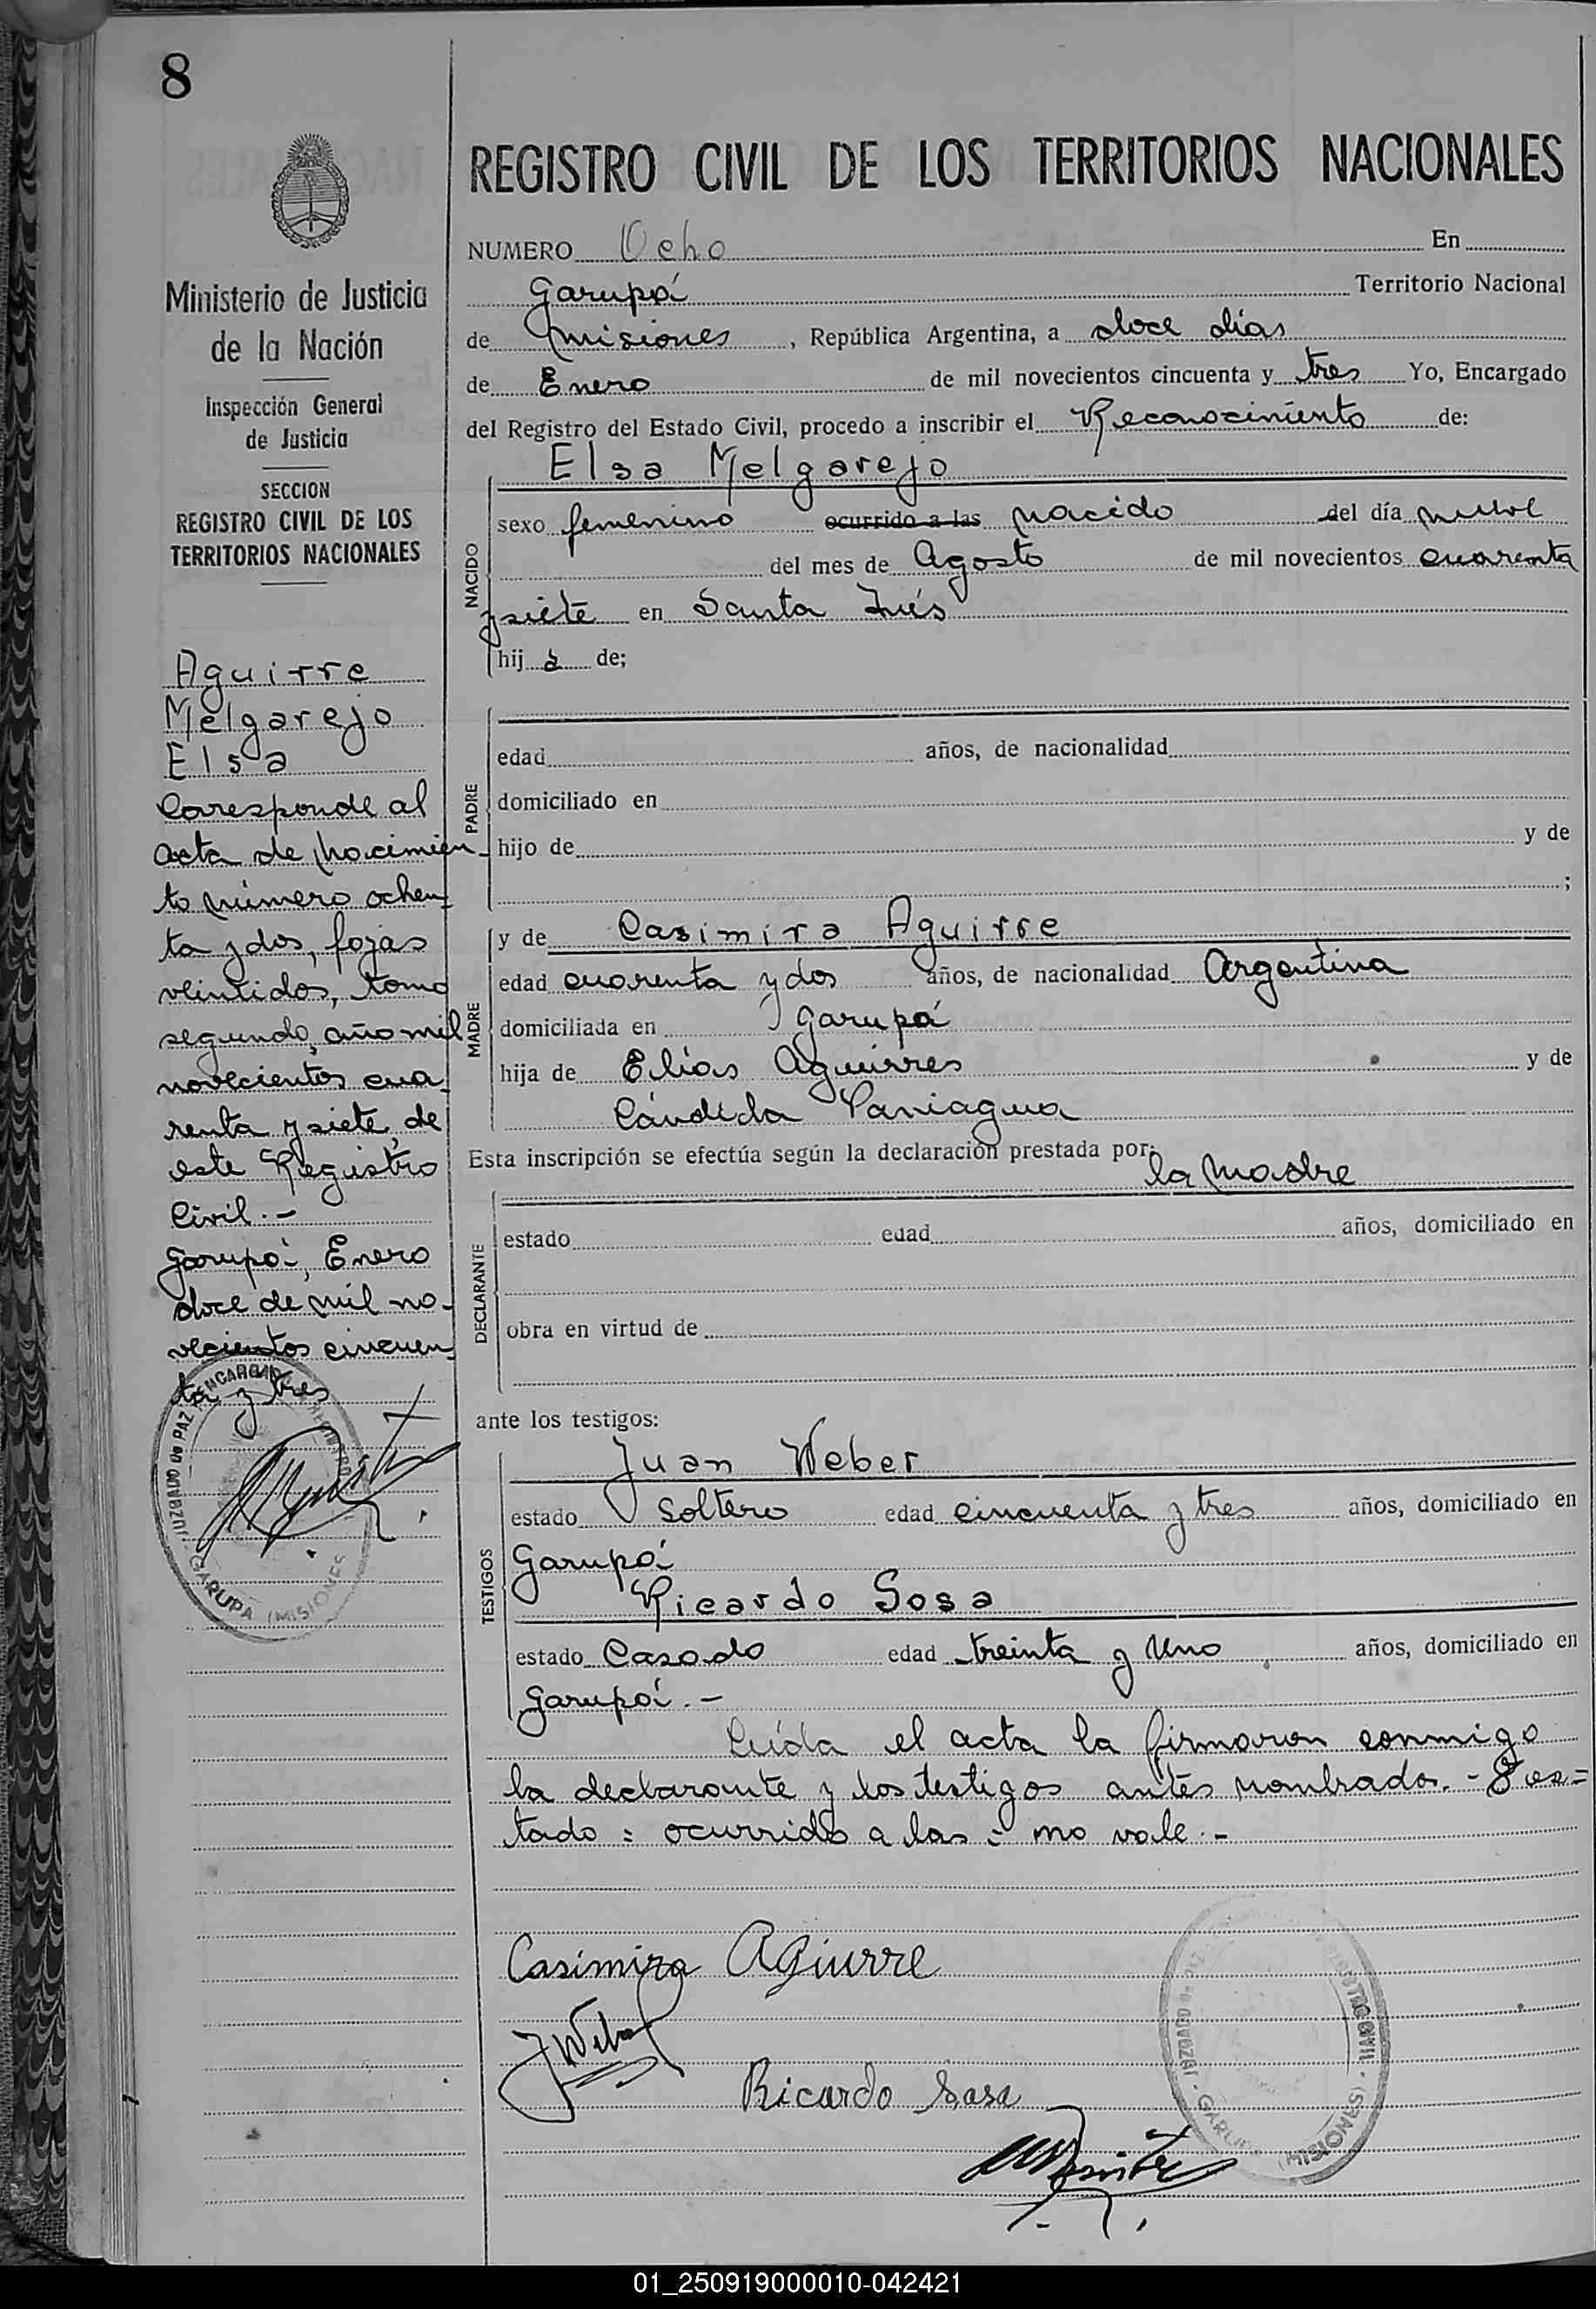 8
REGISTRO CIVIL DE LOS TERRITORIOS NACIONALES
Ministerio de Justicia
de la Nación
Inspección General
de Justicia
SECCION
REGISTRO CIVIL DE LOS
TERRITORIOS NACIONALES
Aguirre
Melgarejo
Elsa
Corresponde al
acta de Nacimien
to número ochen
ta y dos, fojas
veintidos, tomo
segundo, año mil
novecientos cua
renta y siete, de
este Registro
Civil.-
Garupá, Enero
doce de mil no-
vecientos cincuen
ta y tres
JUZGADO de PAZ ENCARGADO
GARUPA (MISIONES
NUMERO Ocho En
Garupá Territorio Nacional
de Misiones, República Argentina, a doce días
de Enero de mil novecientos cincuenta y tres Yo, Encargado
del Registro del Estado Civil, procedo a inscribir el Reconocimiento de:
Elsa Melgarejo
NACIDO
sexo femenino ocurrido a las nacido del día nueve
del mes de Agosto de mil novecientos cuarenta
y siete en Santa Inés
hij a de;
PADRE
edad años, de nacionalidad
domiciliado en
hijo de y de
;
MADRE
y de Casimira Aguirre
edad cuarenta y dos años, de nacionalidad Argentina
domiciliada en Garupá
hija de Elías Aguirres y de
Cándida Paniagua
Esta inscripción se efectúa según la declaración prestada por: la Madre
DECLARANTE
estado edad años, domiciliado en
obra en virtud de
ante los testigos:
TESTIGOS
Juan Weber
estado Soltero edad cincuenta y tres años, domiciliado en
Garupá
Ricardo Sosa
estado Casado edad treinta y Uno años, domiciliado en
Garupá.-
Leída el acta la firmaron conmigo
la declarante y los testigos antes nombrados.-
tado = ocurrido a las = no vale.-
Casimira Agiurre
JWeber
Ricardo Sosa
JUZGADO de PAZ REGISTRO CIVIL - GARUPA (MISIONES)
01_250919000010-042421